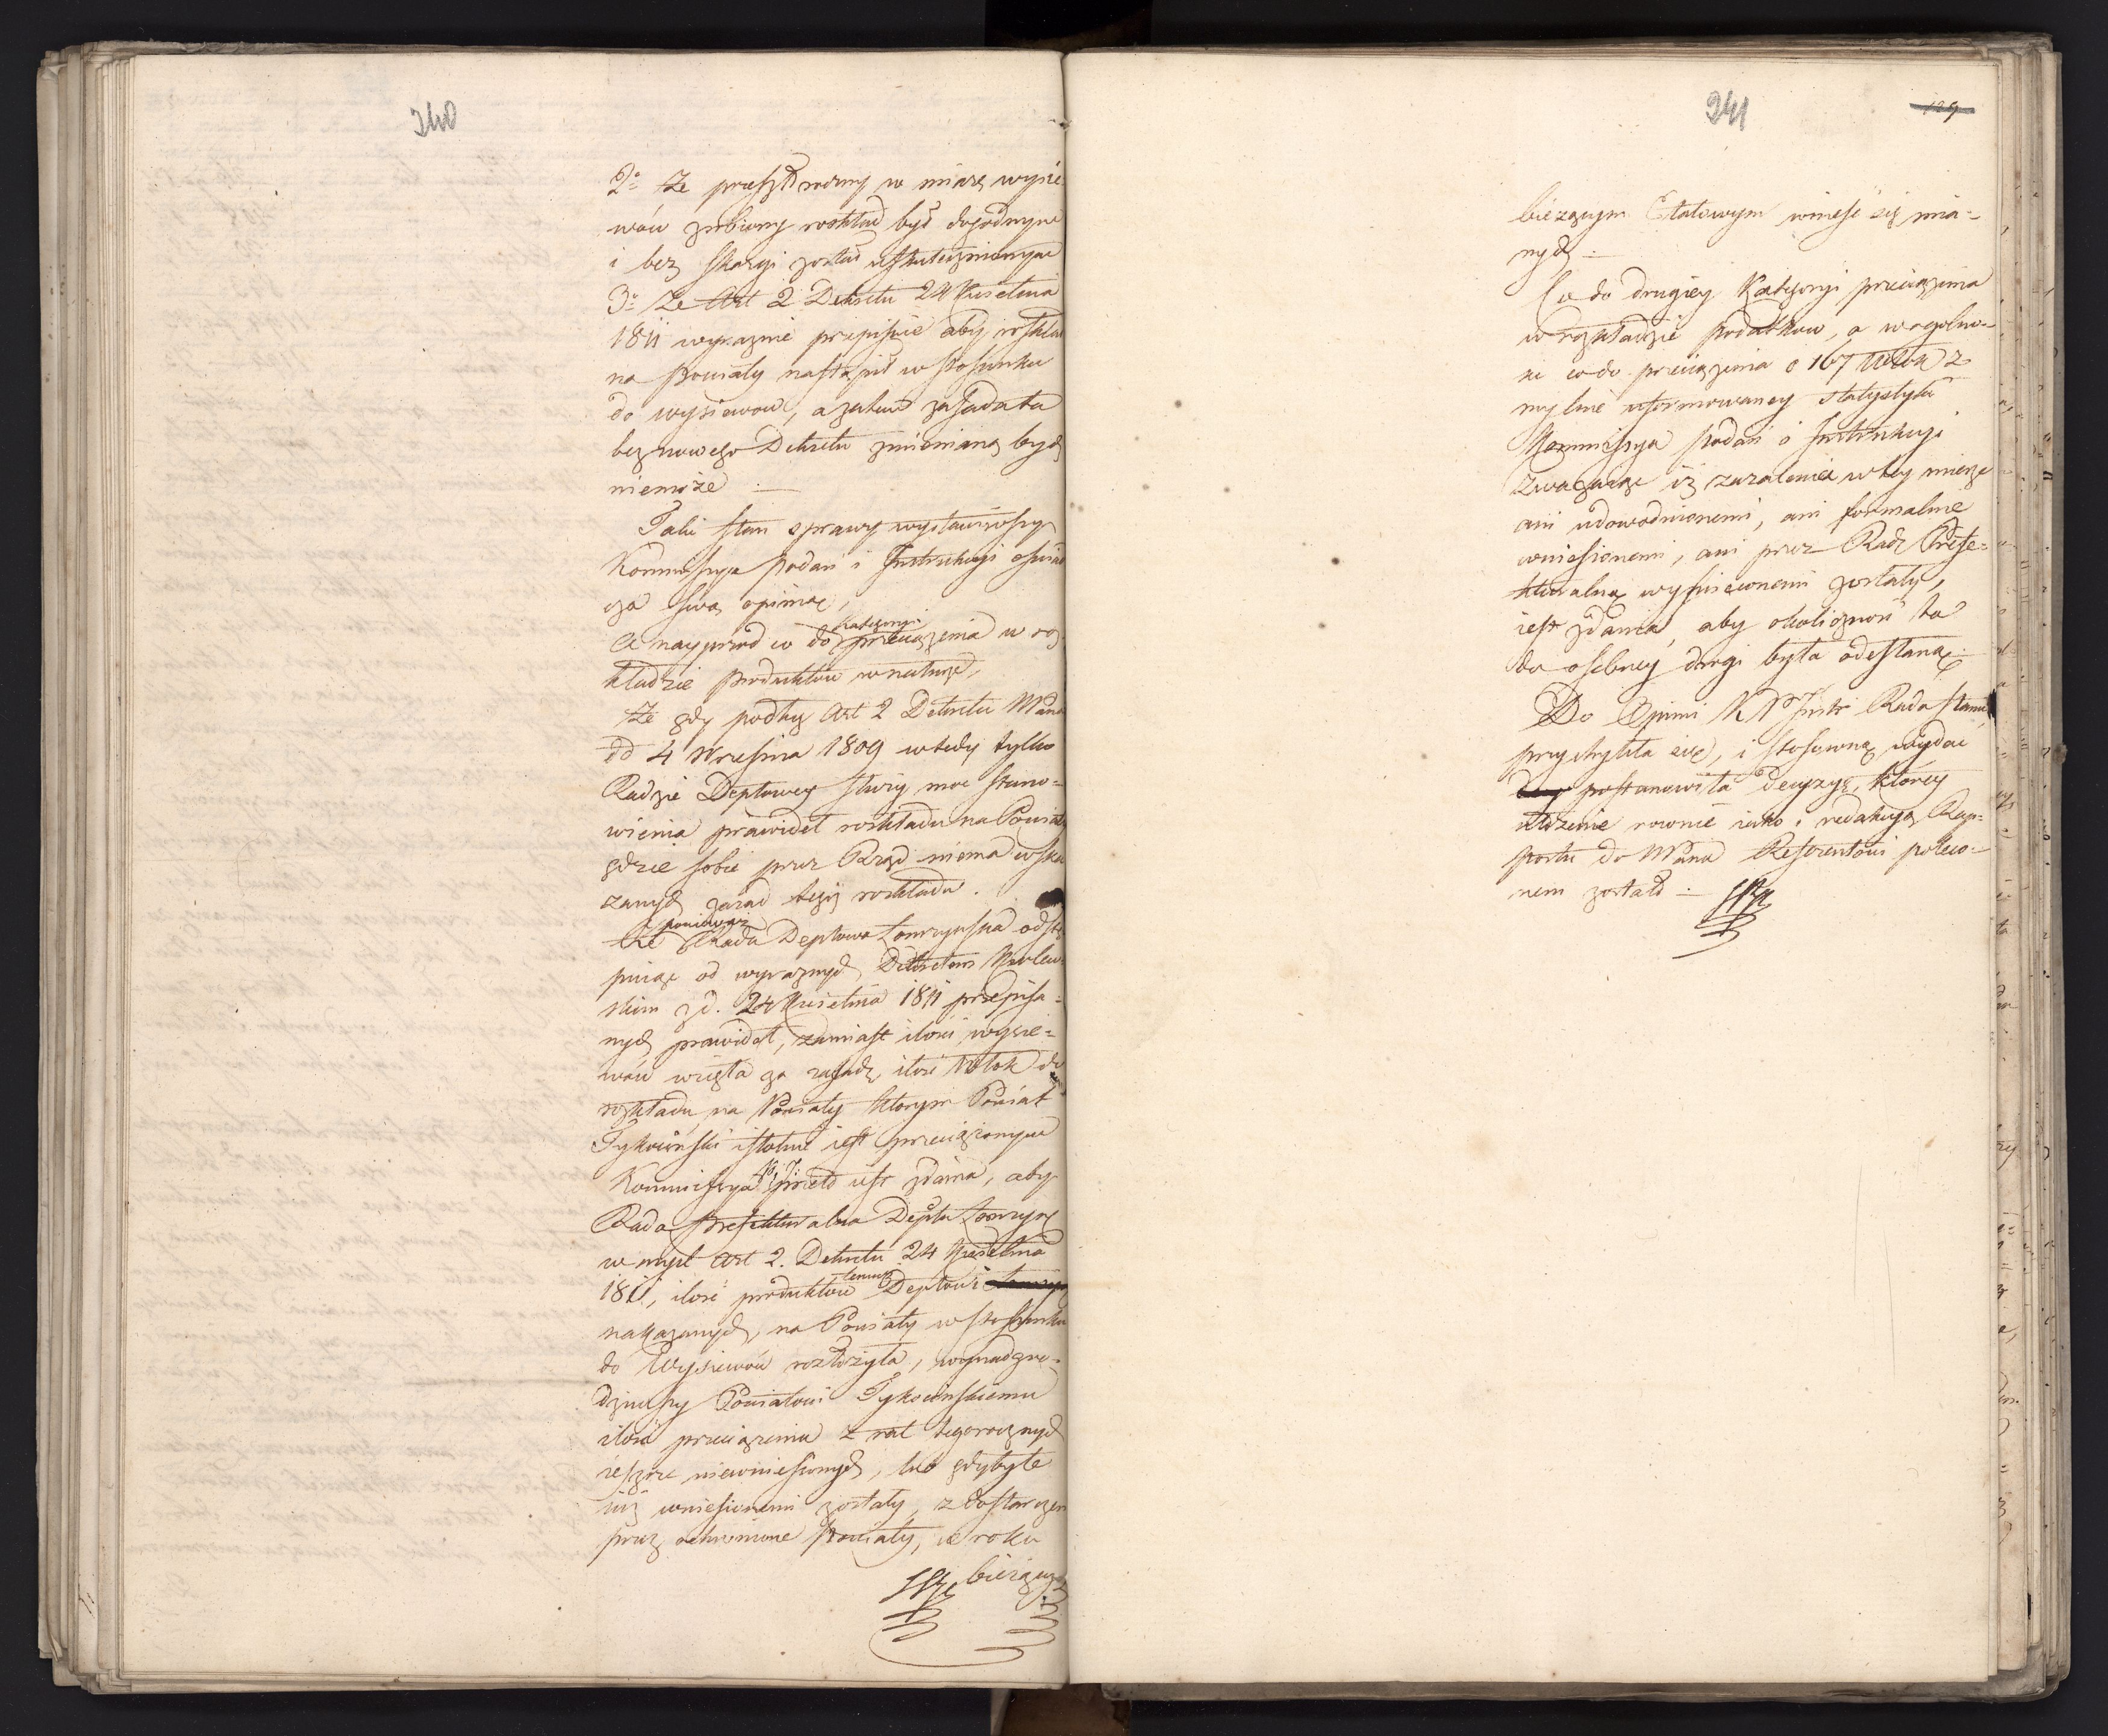 240
2o Że przeszłoroczny w miarę wysie-
wów zrobiony rozkład był dogodnym
i bez skargi został uskutecznionym
3o Że Art 2 Dekretu 24 Kwietnia
1811 wyraznie przepisuie aby rozkład
na Powiaty nastąpił w stosunku
do wysiewow, a zatem zasada ta
bez nowego Dekretu zmienianą bydź
niemoże
Taki stan sprawy wystawiwszy
Kommissya Podań i Instrukcyi oświad
cza swą opinią,
A nayprzod co do kategoryi przeciążenia w roz
kładzie produktów w naturze,
Że gdy podług Art 2 Dekretu
dd 4 Września 1809 wtedy tylko
Radzie Deptowey służy moc stano-
wienia prawideł rozkładu na Powiaty
gdzie sobie przez Rząd niema wska
zanych zasad tegoż rozkładu.
Że ponieważ Rada Deptowa Łomżyńska odstę
puiąc od wyraznych Dekretem Królew-
skim z d. 24 Kwietnia 1811 przepisa-
nych prawideł, zamiast ilości wysie-
wów wzięła za zasadę ilość Włok do
rozkładu na Powiaty ktorym Powiat
Tykociński istotnie iest przeciążonym
Kommissya P. J. przeto iest zdania, aby
Rada Prefekturalna Deptu Łomżyń
w myśl Art 2. Dekretu 24 Kwietnia
1811, ilość produktów temuż Deptowi
nakazanych, na Powiaty w stosunku
do Wysiewów rozłożyła, wynadgro-
dziwszy Powiatowi Tykocińskiemu
ilość przeciążenia z rat tegorocznych
ieszcze niewniesionych, lub gdyby te
iuż wniesionemi zostały, z dostarczeń
przez ochronione Powiaty, w roku
bieżącym
241
129
bieżącym Etatowym wnieść się mia-
nych
Co do drugiey Kategoryi przeciążenia
w rozkładzie podatkow, a w ogolno-
ści co do przeciążenia o 167 Włok z
mylnie uformowaney statystyki
Kommissya podań i Instrukcyi
Zważaiąc iż zażalenia w tey mierze
ani udowodnionemi, ani formalnie
wniesionemi, ani przez Radę Prefe-
kturalną wyświeconemi zostały,
iest zdania, aby okoliczność ta
do osobney drogi była odesłaną.
Do Opinii K P Instr Rada Stanu
przychyliła się, i stosowną wydać
postanowiła decyzyę, którey
ułożenie rownie iako i redakcya Rap-
portu do Referentowi poleco-
nem zostało